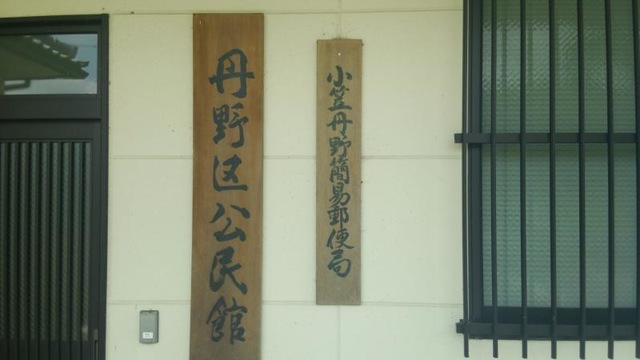 丹野区公民館
小笠丹野簡易郵便局